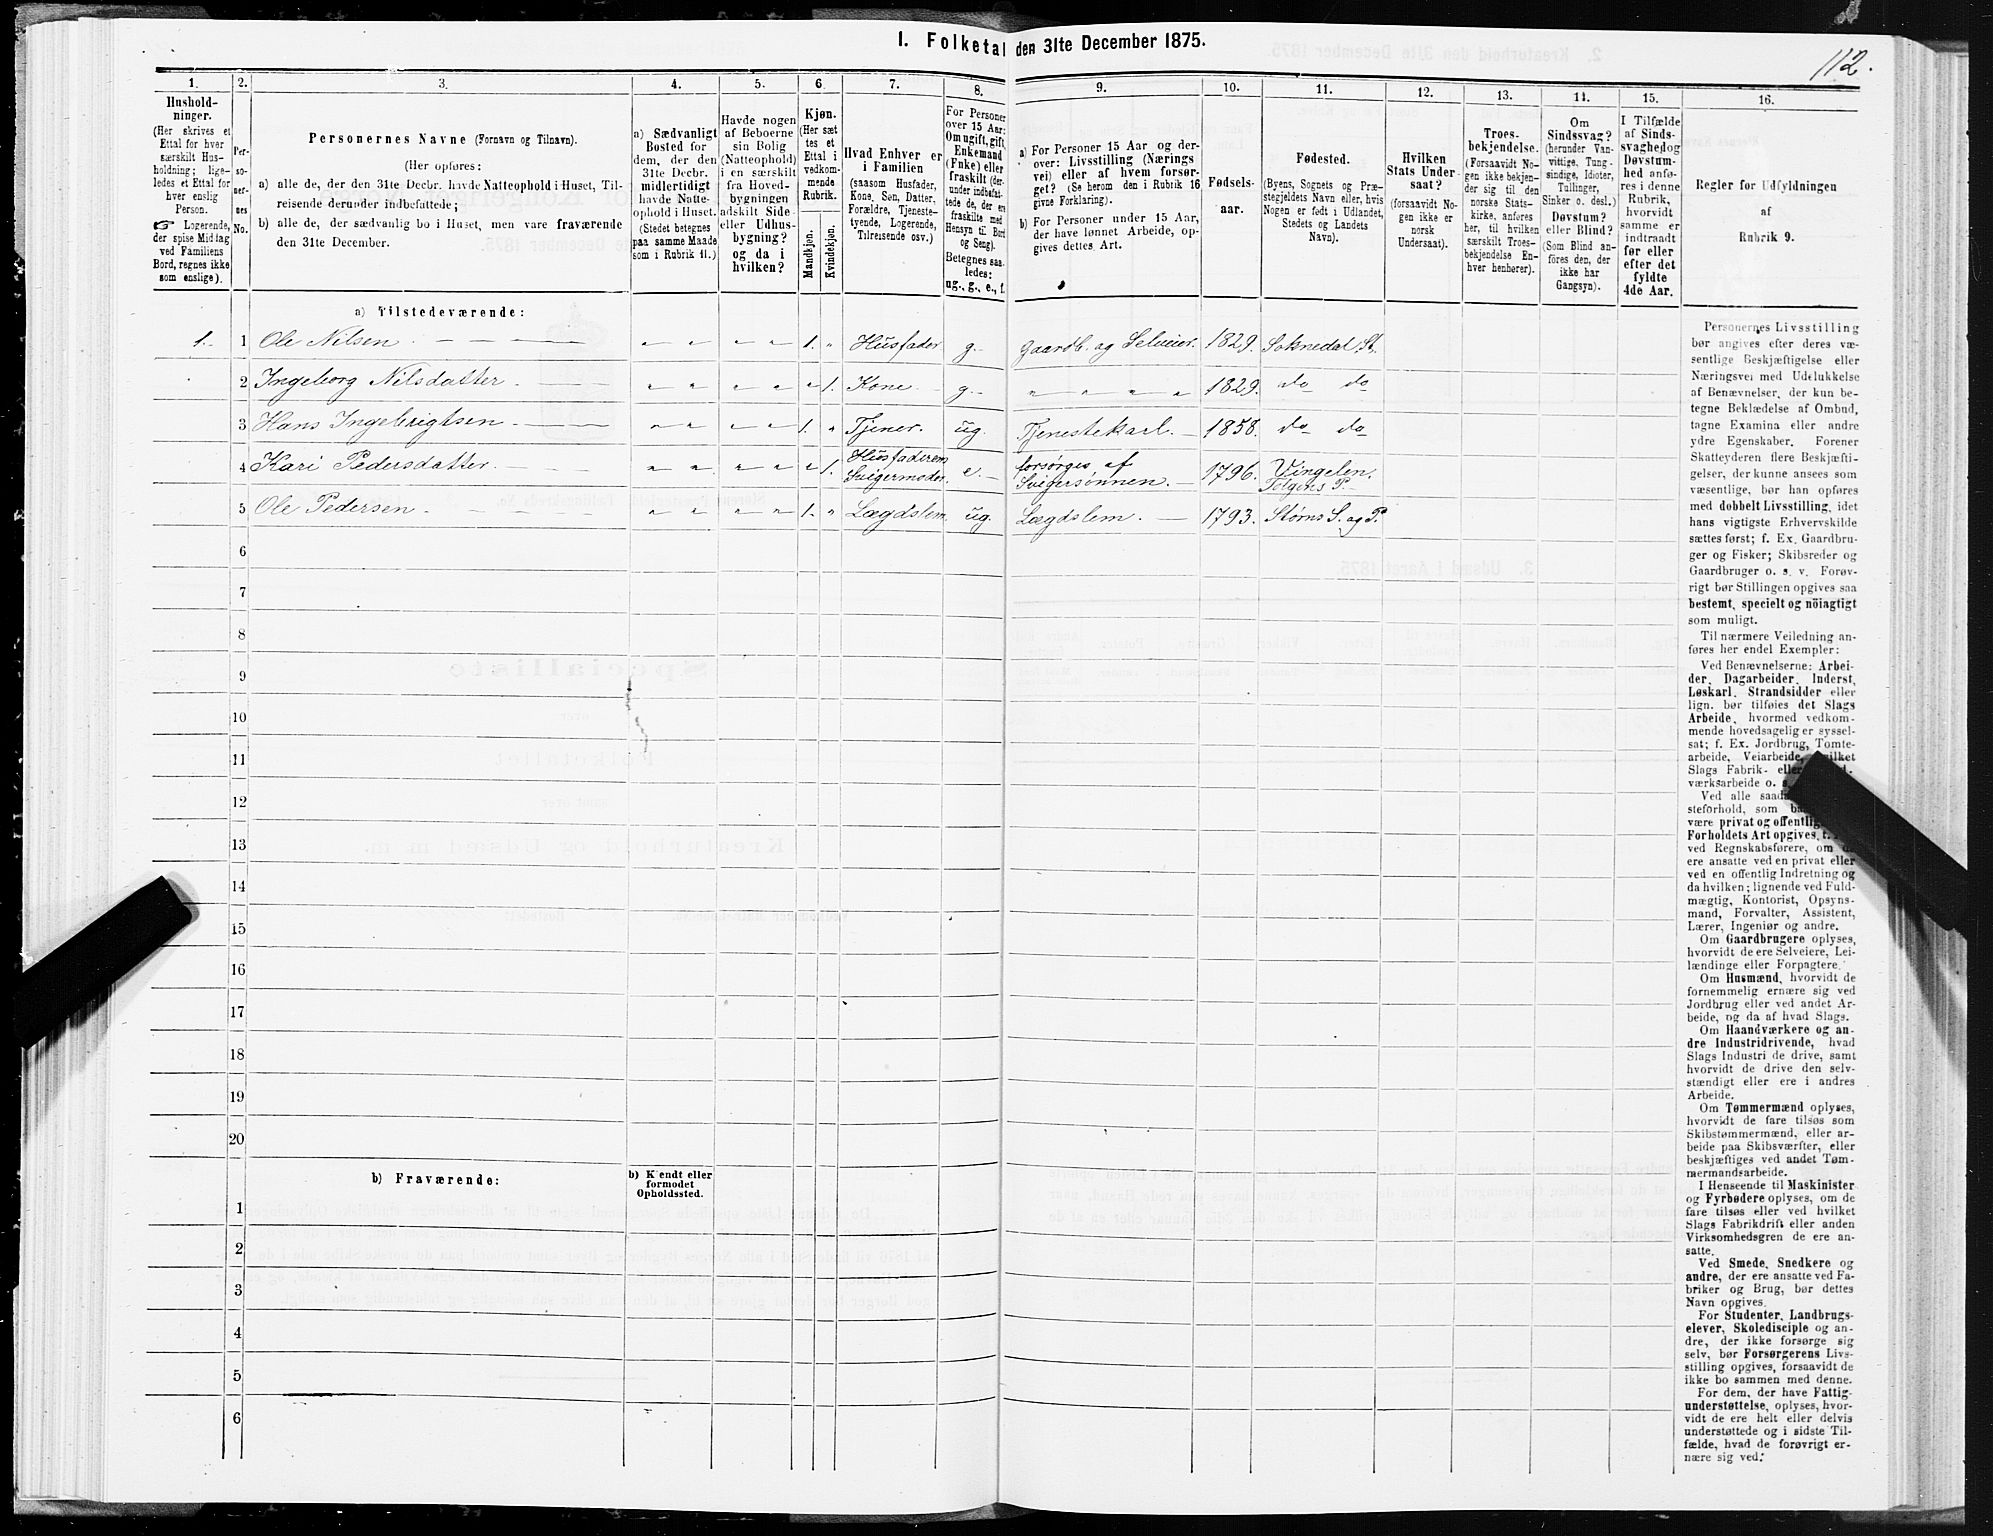 I. Folketal den 31te December 1875.
112.
1.
Husholdninger.
(Her skrives et
Ettal for hver
særskilt Husholdning; ligeledes et Ettal for
hver enslig
Person.
☞ Logerende,
der spise Middag
ved Familiens
Bord, regnes ikke
som enslige).
2.
Personernes
No.
3.
Personernes Navne (Fornavn og Tilnavn).
(Her opføres:
a) alle de, der den 31te Decbr. havde Natteophold i Huset, Tilreisende derunder indbefattede;
b) alle de, der sædvanlig bo i Huset, men vare fraværende
den 31te December.
4.
a) Sædvanligt
Bosted for
dem, der den
31te Decbr.
midlertidigt
havde Natteophold i Huset.
(Stedet betegnes
paa samme Maade
som i Rubrik 11.)
5.
Havde nogen
af Beboerne
sin Bolig
(Natteophold)
i en særskilt
fra Hovedbygningen
adskilt Side-
eller Udhusbygning?
og da i
hvilken?
6.
Kjøn.
(Her sæt
tes et
Ettal i
vedkommende
Rubrik.
Mandkjøn.
Kvindekjøn.
7.
Hvad Enhver er
i Familien
(saasom Husfader,
Kone, Søn, Datter,
Forældre, Tjenestetyende, Logerende,
Tilreisende osv.)
8.
For Personer
over 15 Aar:
Om ugift, gift,
Enkemand
(Enke) eller
fraskilt (derunder indbefattede de, der ere
fraskilte med
Hensyn til Bord
og Seng).
Betegnes saaledes:
ug., g., e., f.
9.
a) For Personer 15 Aar og derover: Livsstilling (Næringsvei) eller af hvem forsørget? (Se herom den i Rubrik 16
givne Forklaring).
b) For Personer under 15 Aar,
der have lønnet Arbeide, opgives dettes Art.
10.
Fødselsaar.
11.
Fødested.
(Byens, Sognets og Præstegjeldets Navn eller, hvis
Nogen er født i Udlandet,
Stedets og Landets
Navn).
12.
Hvilken
Stats Undersaat?
(forsaavidt Nogen ikke er
norsk
Undersaat).
13.
Troesbekjendelse.
(Forsaavidt Nogen ikke bekjender sig til den
norske Statskirke, anføres
her, til hvilken
særskilt Troesbekjendelse Enhver henhører).
14.
Om
Sindssvag?
(herunder Vanvittige, Tungsindige, Idioter,
Tullinger,
Sinker o. desl.)
Døvstum?
eller Blind?
(Som Blind anføres den, der
ikke har
Gangsyn).
15.
I Tilfælde
af Sindssvaghed og
Døvstumhed anføres i denne
Rubrik,
hvorvidt
samme er
indtraadt
før eller
efter det
fyldte
4de Aar.
16.
Regler for Udfyldningen
af
Rubrik 9.
a) Tilstedeværende:
1. 1 Ole Nilsen 1. Husfader g. Gaardb. og Selveier. 1829. Soknedal, St.
2 Ingeborg Nilsdatter 1. Kone g. 1829. do do
3 Hans Ingebrigtsen 1. Tjener. ug. Tjenestekarl. 1858. do do
4 Kari Pedersdatter 1. Husfaderens Svigermoder. e. forsørges af Svigersønnen. 1796. Vingelen. Tolgens P.
5 Ole Pedersen 1. Lægdslem ug. Lægdslem. 1793. Størns S. og P.
6
7
8
9
10
11
12
13
14
15
16
17
18
19
20
b) Fraværende:
b) Kendt eller
formodet
Opholdssted.
1
2
3
4
5
6
Personernes Livsstilling
bør angives efter deres væsentlige Beskjæftigelse eller
Næringsvei med Udelukkelse
af Benævnelser, der kun betegne Beklædelse af Ombud,
tagne Examina eller andre
ydre Egenskaber. Forener
Skatteyderen flere Beskjæftigelser, der kunne ansees som
væsentlige, bør han opføres
med dobbelt Livsstilling, idet
hans vigtigste Erhvervskilde
sættes først; f. Ex. Gaardbruger og Fisker; Skibsreder og
Gaardbruger o. s. v. Forøvrigt bør Stillingen opgives saa
bestemt, specielt og nöiagtigt
som muligt.
Til nærmere Veiledning anføres her endel Exempler:
Ved Benævnelserne: Arbeider, Dagarbeider, Inderst,
Løskarl, Strandsidder eller
lign. bør tilføies det Slags
Arbeide, hvormed vedkommende hovedsagelig er sysselsat; f. Ex. Jordbrug, Tomtearbeide, Veiarbeide,
Slags Fabrik-
værksarbeide o.
Ved alle
steforhold, som
være privat og
Forholdets Art opgives,
ved Regnskabsførere, om
ere ansatte ved en privat eller
ved en offentlig Indretning og
da hvilken; lignende ved Fuldmægtig, Kontorist, Opsynsmand, Forvalter, Assistent,
Lærer, Ingeniør og andre.
Om Gaardbrugere oplyses,
hvorvidt de ere Selveiere, Leilændinge eller Forpagtere.
Om Husmænd, hvorvidt de
fornemmelig ernære sig ved
Jordbrug eller ved andet Arbeide, og da af hvad Slags.
Om Haandværkere og andre Industridrivende, hvad
Slags Industri de drive, samt
hvorvidt de drive den selvstændigt eller ere i andres
Arbeide.
Om Tømmermænd oplyses,
hvorvidt de fare tilsøs som
Skibstømmermænd, eller arbeide paa Skibsværfter, eller
beskjæftiges ved andet Tømmermandsarbeide.
I Henseende til Maskinister
og Fyrbødere oplyses, om de
fare tilsøs eller ved hvilket
Slags Fabrikdrift eller anden
Virksomhedsgren de ere ansatte.
Ved Smede, Snedkere og
andre, der ere ansatte ved Fabriker og Brug, bør dettes
Navn opgives.
For Studenter, Landbrugselever, Skoledisciple og andre, der ikke forsørge sig
selv, bør Forsørgerens Livsstilling opgives, forsaavidt de
ikke bo sammen med denne.
For dem, der have Fattigunderstøttelse, oplyses, hvorvidt de ere helt eller delvis
understøttede og i sidste Tilfælde, hvad de forøvrigt ernære sig ved.